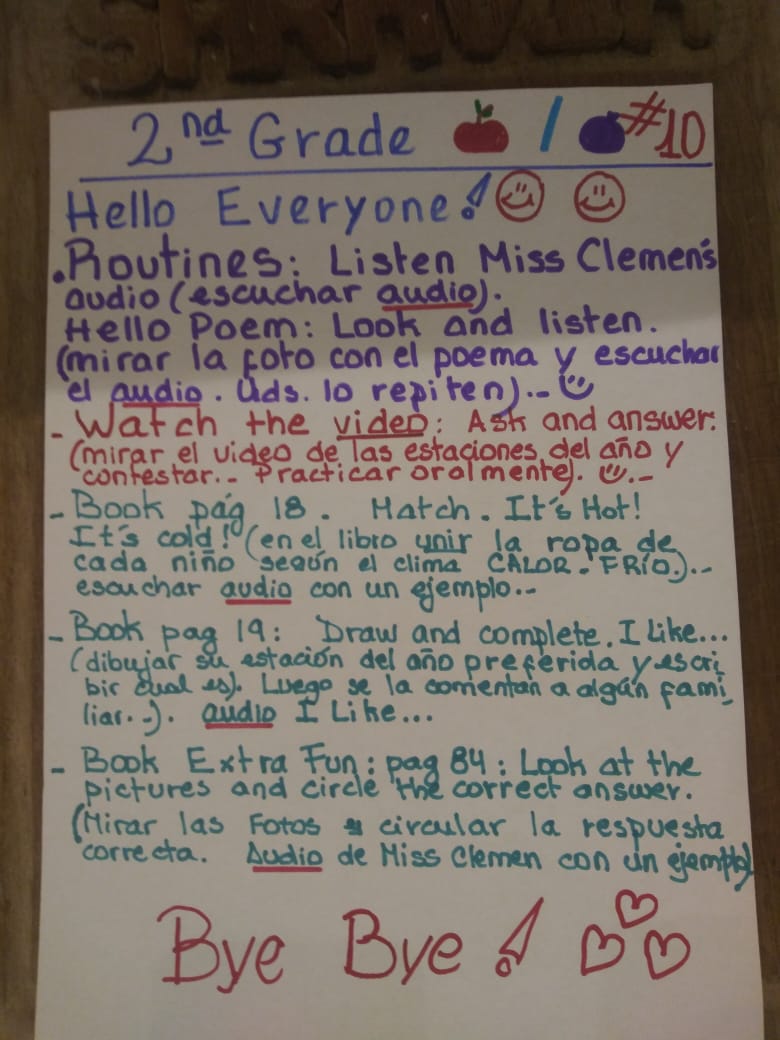 2nd Grade / #10
Hello Everyone!
.Routines: Listen Miss Clemen's
audio (escuchar audio).
Hello Poem: Look and listen.
(mirar la foto con el poema y escuchar
el audio. Uds. lo repiten)...
- Watch the video: Ask and answer:
(mirar el video de las estaciones del año y
contestar.. Practicar oralmente). ..-
- Book pág 18. Match. It's Hot!
It's cold! (en el libro unir la ropa de
cada niño según el clima CALOR - FRÍO.)..-
escuchar audio con un ejemplo..-
- Book pag 19: Draw and complete. I Like...
(dibujar su estación del año preferida y escri
bir cual es). Luego se la comentan a algún fami_
liar..-). audio I Like...
- Book Extra Fun: pag 84: Look at the
pictures and circle the correct answer.
(Mirar las Fotos y circular la respuesta
correcta. Audio de Miss Clemen con un ejemplo)
Bye Bye!